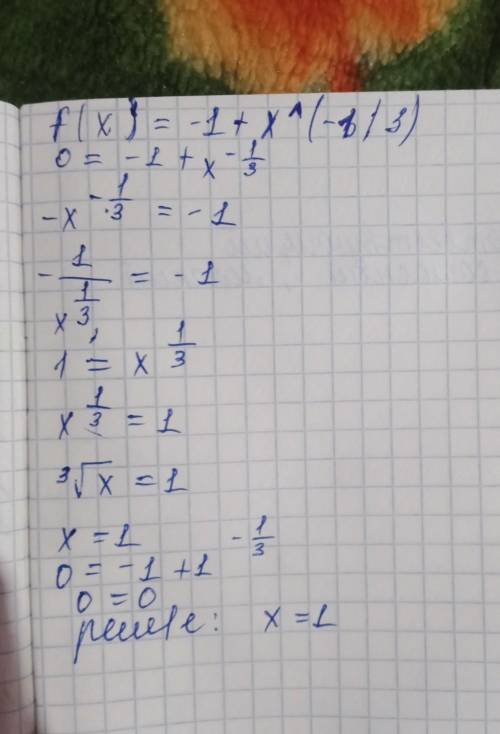 f(x) = -1 + x^(-1/3)
0 = -1 + x^{-1/3}
-x^{-1/3} = -1
-1/x^{1/3} = -1
1 = x^{1/3}
x^{1/3} = 1
³√x = 1
x = 1
0 = -1 + 1^{-1/3}
0 = 0
x = 1